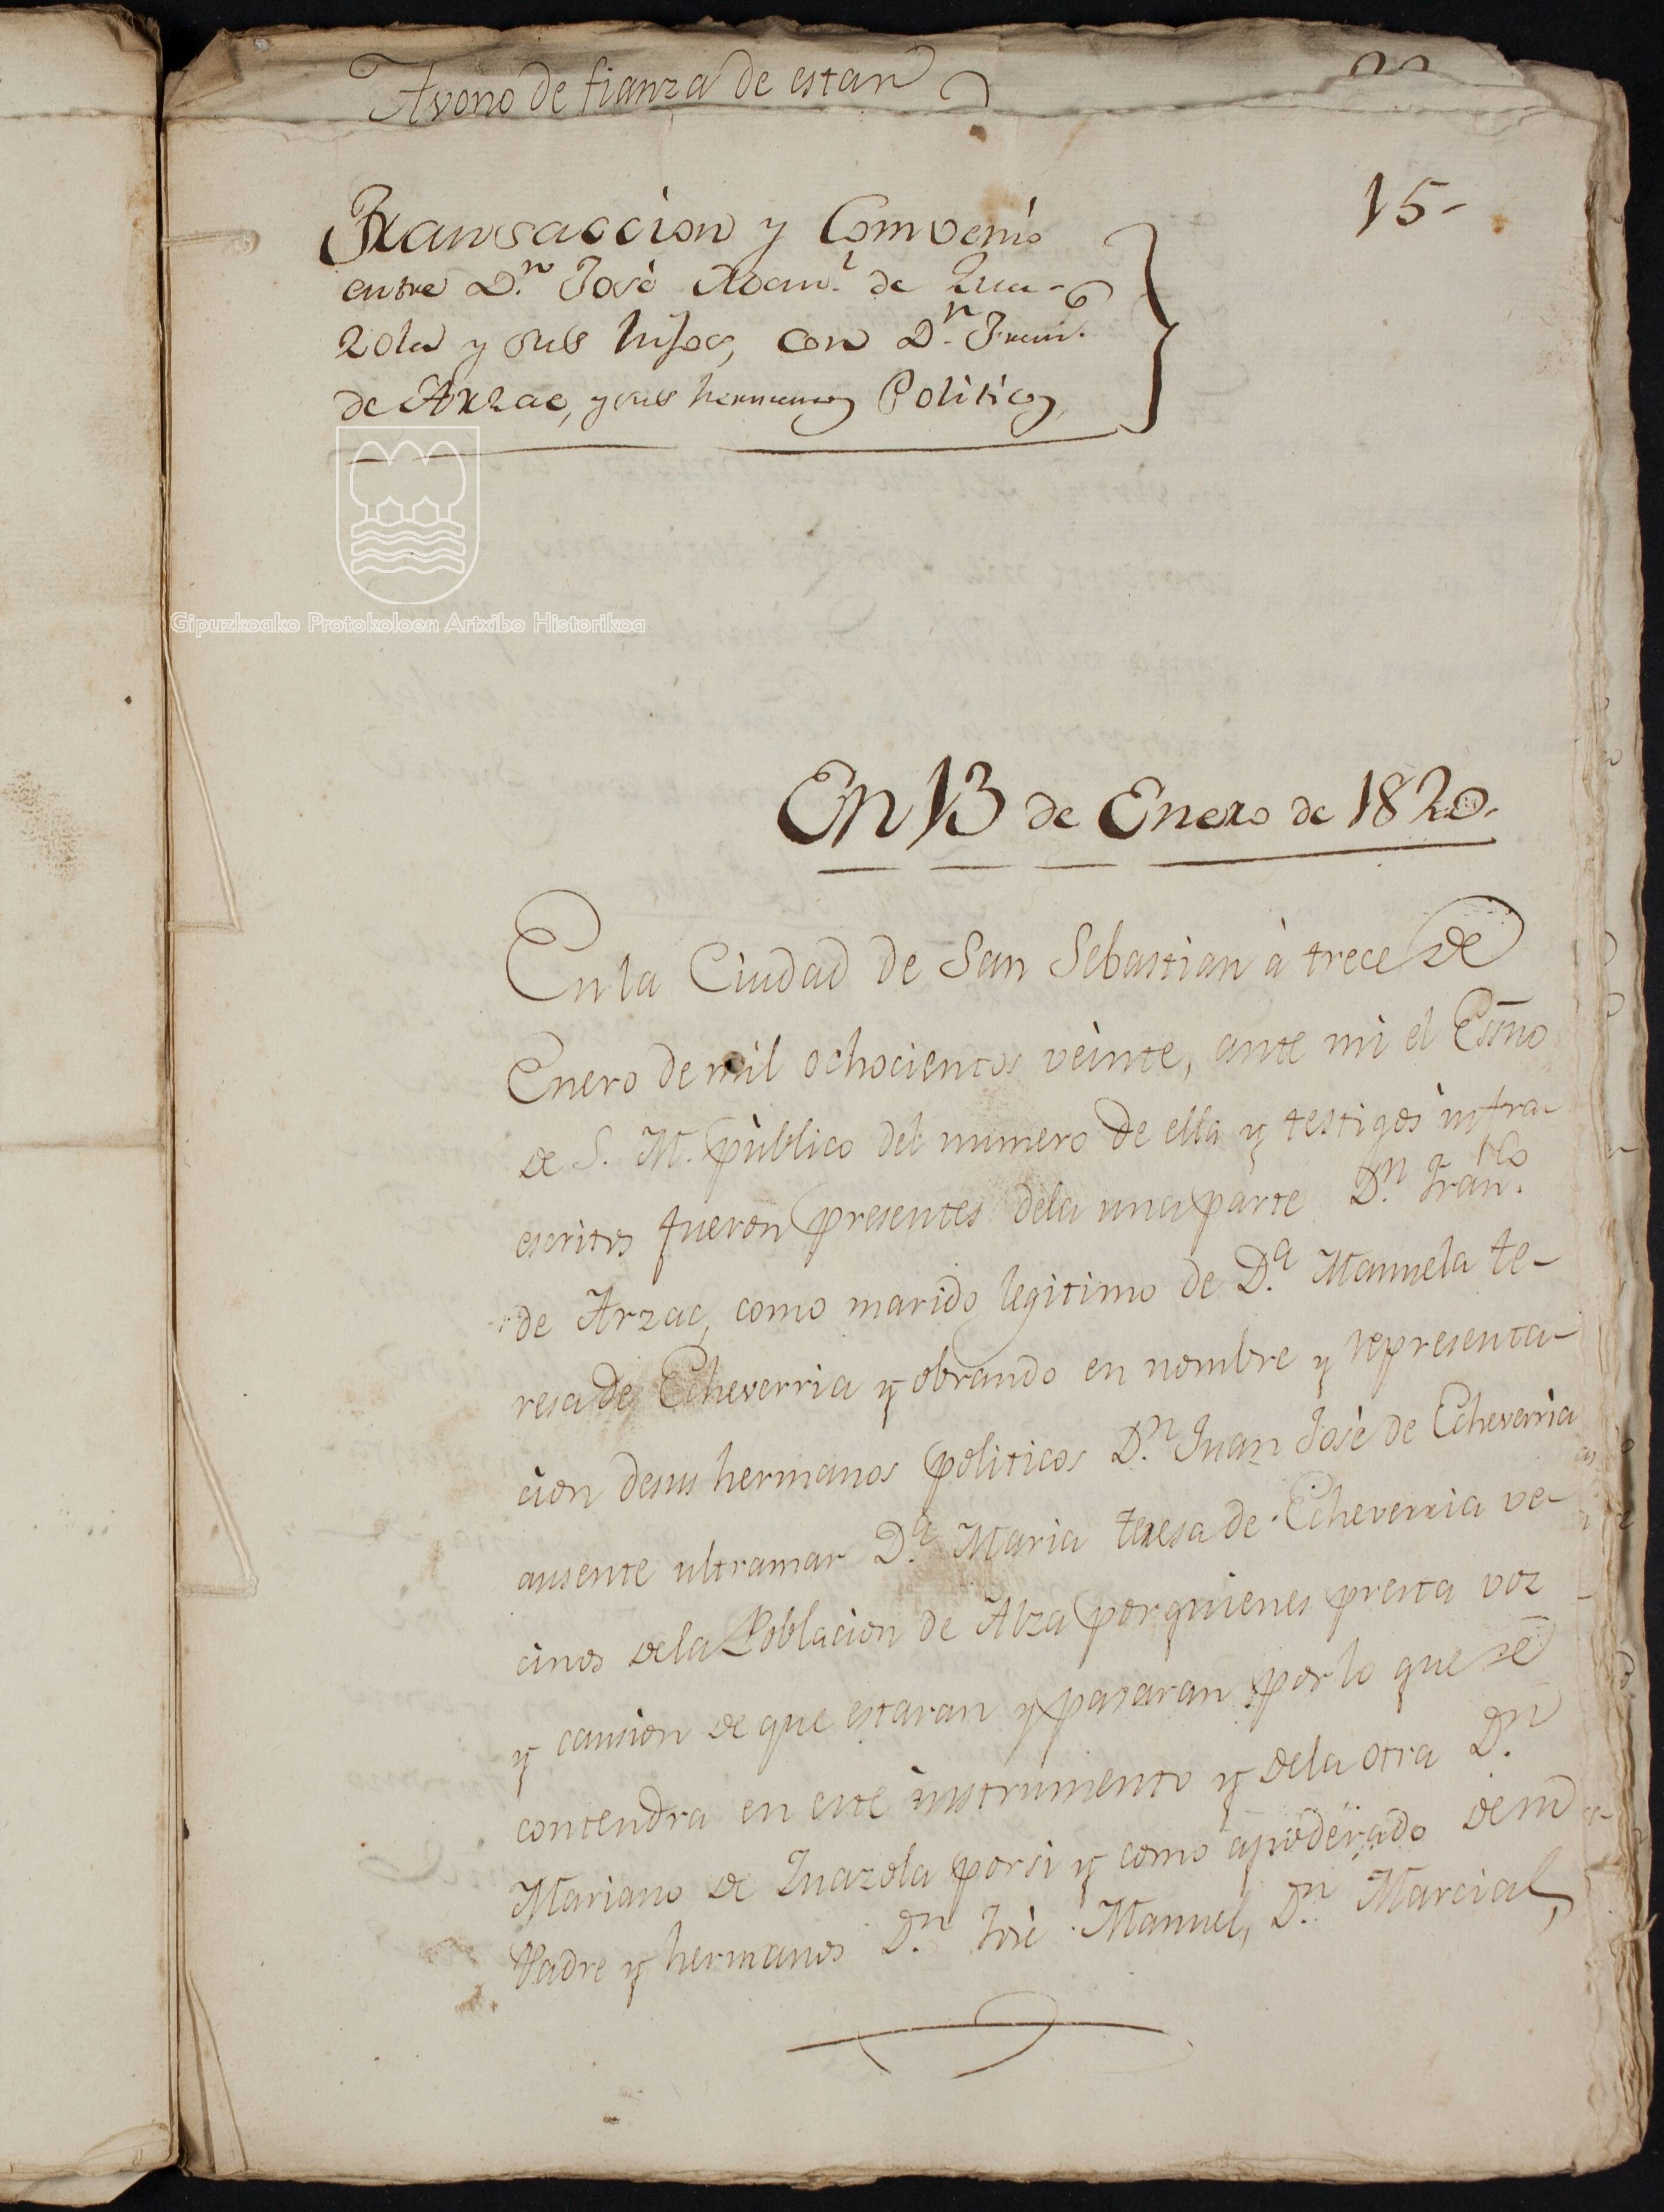 Avono de fianza de estar
15-
Transaccion y Convenio
entre D.n José Man.l de Zua-
zola y sus hijos, con D.n Fran.co
de Arzac, y sus hermanos Politicos
Gipuzkoako Protokoloen Artxibo Historikoa
En 13 de Enero de 1820.
En la Ciudad de San Sebastian à trece de
Enero de mil ochocientos veinte, ante mi el Esño
de S. M. pùblico del numero de ella y testigos infra-
escritos fueron presentes dela una parte D.n Fran.co
de Arzac, como marido legitimo de D.a Manuela te-
resa de Echeverria y obrando en nombre y representa-
cion desus hermanos politicos D.n Juan José de Echeverria
ausente ultramar D.a Maria teresa de Echeverria ve-
cinos dela Poblacion de Alza porquienes presta voz
y caucion de que estaran y pasaran por lo que se
contendra en este instrumento y dela otra D.n
Mariano de Zuazola porsi y como apoderado de su
Padre y hermanos D.n José Manuel, D.n Marcial,